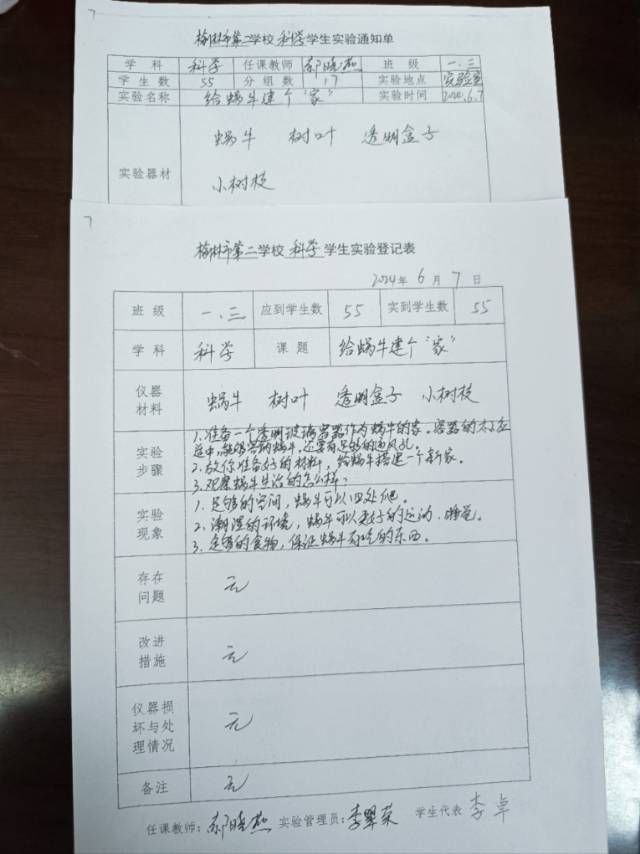 7
榆林市第二学校 科学 学生实验通知单
学科 科学 任课教师 郝晓燕 班级 一.三
学生数 55 分组数 17 实验地点 实验室
实验名称 给蜗牛建个"家" 实验时间 2024.6.7
实验器材 蜗牛 树叶 透明盒子
小树枝
7
榆林市第二学校 科学 学生实验登记表
2024年 6月 7日
班级 一.三 应到学生数 55 实到学生数 55
学科 科学 课题 给蜗牛建个"家"
仪器材料 蜗牛 树叶 透明盒子 小树枝
实验步骤 1.准备一个透明玻璃容器作为蜗牛的家。容器的大小应
适中,能够容纳蜗牛,还要有足够的通风孔。
2.放你准备好的材料,给蜗牛搭建一个新家。
3.观察蜗牛生活的怎么样?
实验现象 1.足够的空间,蜗牛可以四处爬。
2.潮湿的环境,蜗牛可以更好的运动、睡觉。
3.足够的食物,保证蜗牛有吃的东西。
存在问题 无
改进措施 无
仪器损坏与处理情况 无
备注 无
任课教师:郝晓燕 实验管理员:李翠荣 学生代表 李卓